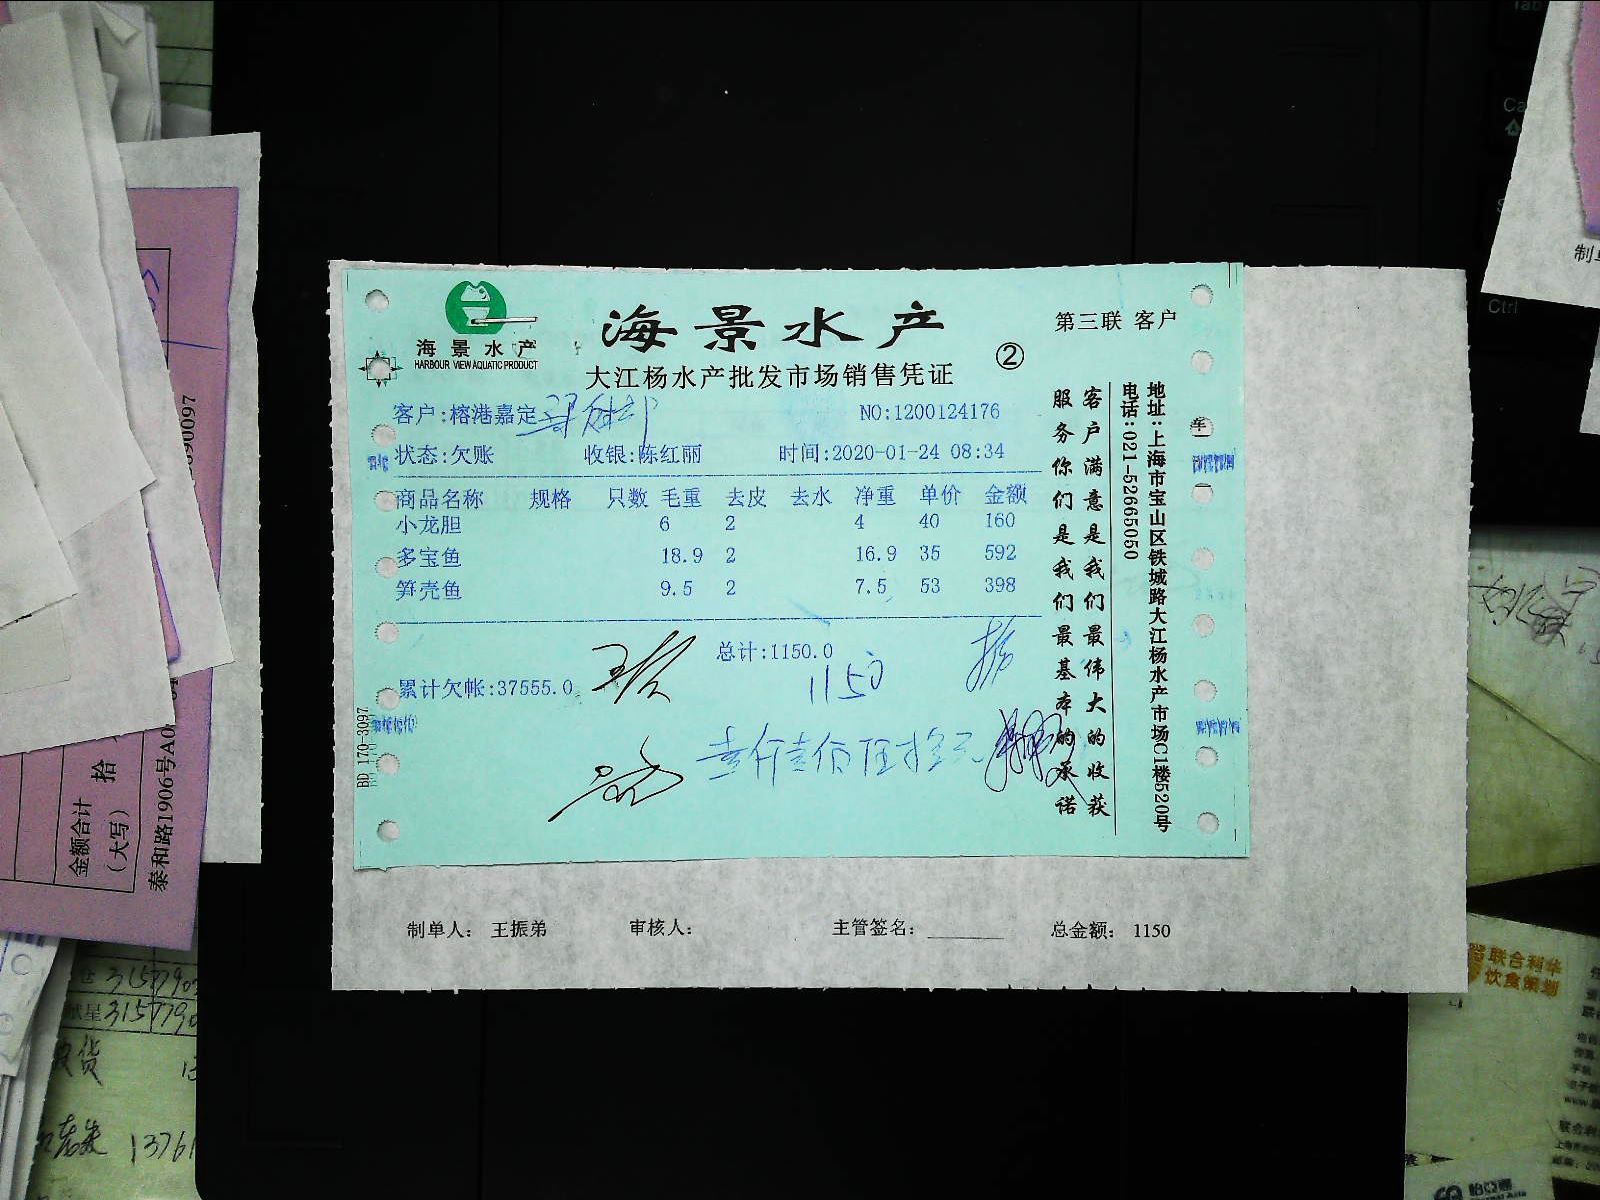 海景水产
HARBOUR VIEW AQUATIC PRODUCT
海景水产
大江杨水产批发市场销售凭证
②
第三联 客户
客户:榕港嘉定
NO:1200124176
状态:欠账 收银:陈红丽 时间:2020-01-24 08:34
商品名称 规格 只数 毛重 去皮 去水 净重 单价 金额
小龙胆 6 2 4 40 160
多宝鱼 18.9 2 16.9 35 592
笋壳鱼 9.5 2 7.5 53 398
总计:1150.0
1150
累计欠帐:37555.0
壹仟壹佰伍拾元
客户满意是我们最伟大的收获
服务你们是我们最基本的承诺
地址:上海市宝山区铁城路大江杨水产市场C1楼520号
电话:021-52665050
BD 170-3097
制单人: 王振弟 审核人: 主管签名: 总金额: 1150
金额合计
(大写)
拾
泰和路1906号A0
联合利华
饮食策划
Ctrl